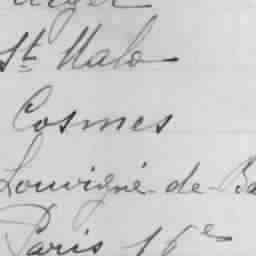 St Malo
Cosmes
Louvigné-de-Ba
Paris 16e